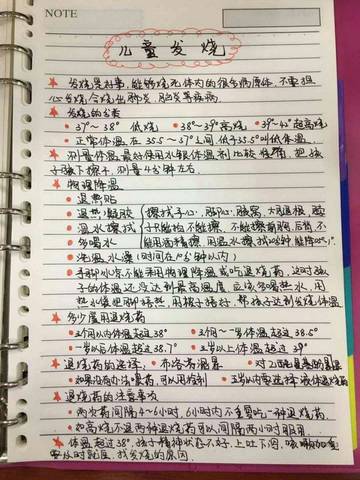 NOTE
儿童发烧
发烧是好事,能够烧死体内的很多病原体,不要担
心发烧会烧出肺炎、脑炎等疾病。
发烧的分类
37°~38° 低烧 38°~39°高烧 39°~42°超高烧
正常体温在35.5~37°之间 低于35.5°叫低体温
测量体温最好使用水银体温剂比较准确,把孩
子腋下擦干,测量4分钟左右。
物理降温
退热贴
退热 (擦拭手心、脚心、腋窝、大腿根、
温水擦拭 不能擦前胸、后背、不
多喝水 能用酒精擦,用温水擦拭10分钟能降
泡温水澡(时间在10分钟以内)
手脚冰凉不能采用物理降温或吃退烧药,这时孩
子的体温还没达到最高温度,应该多喝热水,用
热水袋把脚捂热,用被子捂好,帮孩子达到发烧体温
多少度用退烧药
3个月以内体温超过38° 3个月~一岁体温超过38.5°
一岁以后体温超过38.7° 3岁以上体温超过39°
退烧药的选择 布洛芬混悬 对乙酰氨基酚
如果没有办法喂药,可以用栓剂 3岁以内需选择液体退烧药
退烧药的注意事项
两次药间隔4~6小时,6小时内不重复吃一种退烧药
如高烧不退两种退烧药可以间隔两小时服用
体温超过38°,孩子精神状态不好,上吐下泻,咳嗽加重
要及时就医,找发烧的原因.